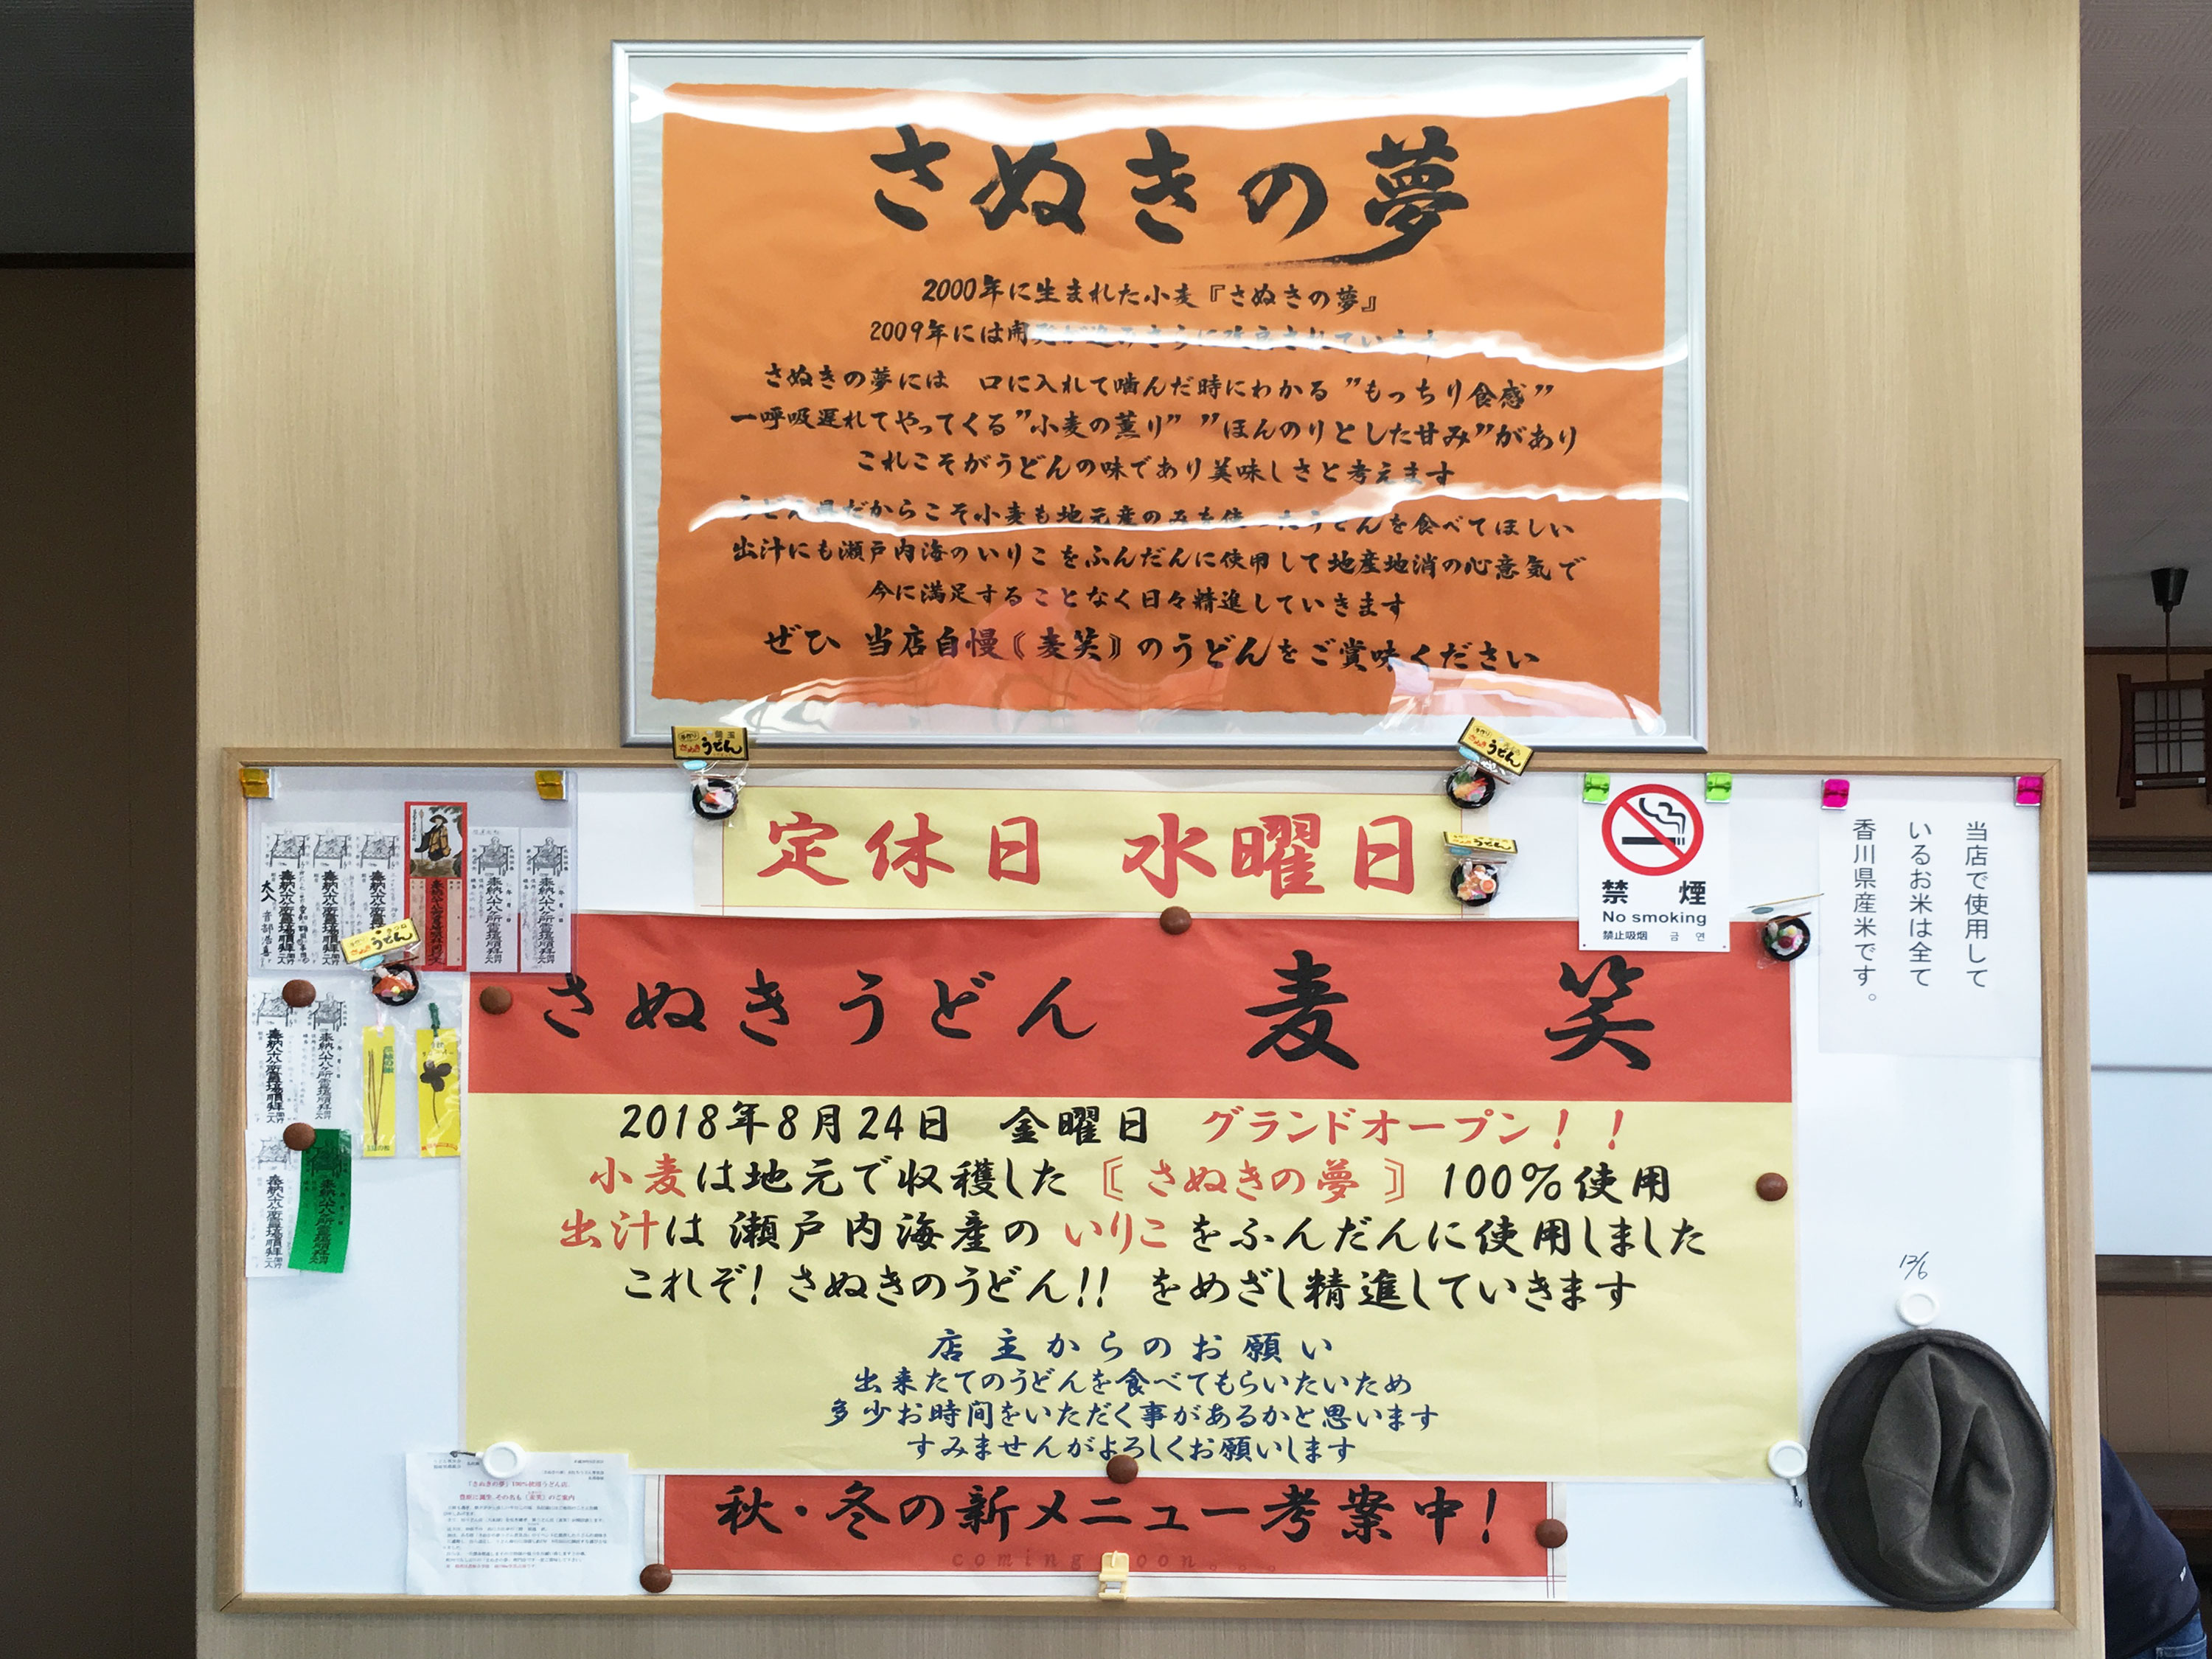 さぬきの夢
2000年に生まれた小麦『さぬきの夢』
2009年には開発が進みさらに改良されています
さぬきの夢には 口に入れて噛んだ時にわかる ”もっちり食感”
一呼吸遅れてやってくる”小麦の薫り” ”ほんのりとした甘み”があり
これこそがうどんの味であり美味しさと考えます
うどん県だからこそ小麦も地元産のみを使ったうどんを食べてほしい
出汁にも瀬戸内海のいりこをふんだんに使用して地産地消の心意気で
今に満足することなく日々精進していきます
ぜひ 当店自慢《麦笑》のうどんをご賞味ください
定休日 水曜日
禁 煙
No smoking
禁止吸烟 금 연
当店で使用して
いるお米は全て
香川県産米です。
さぬきうどん 麦 笑
2018年8月24日 金曜日 グランドオープン！！
小麦は地元で収穫した〘さぬきの夢〙100％使用
出汁は瀬戸内海産のいりこをふんだんに使用しました
これぞ！さぬきのうどん!! をめざし精進していきます
店主からのお願い
出来たてのうどんを食べてもらいたいため
多少お時間をいただく事があるかと思います
すみませんがよろしくお願いします
秋・冬の新メニュー考案中！
coming soon...
12/6
さぬきうどん
うどん
うどん
うどん
「さぬきの夢」100％使用うどん店、